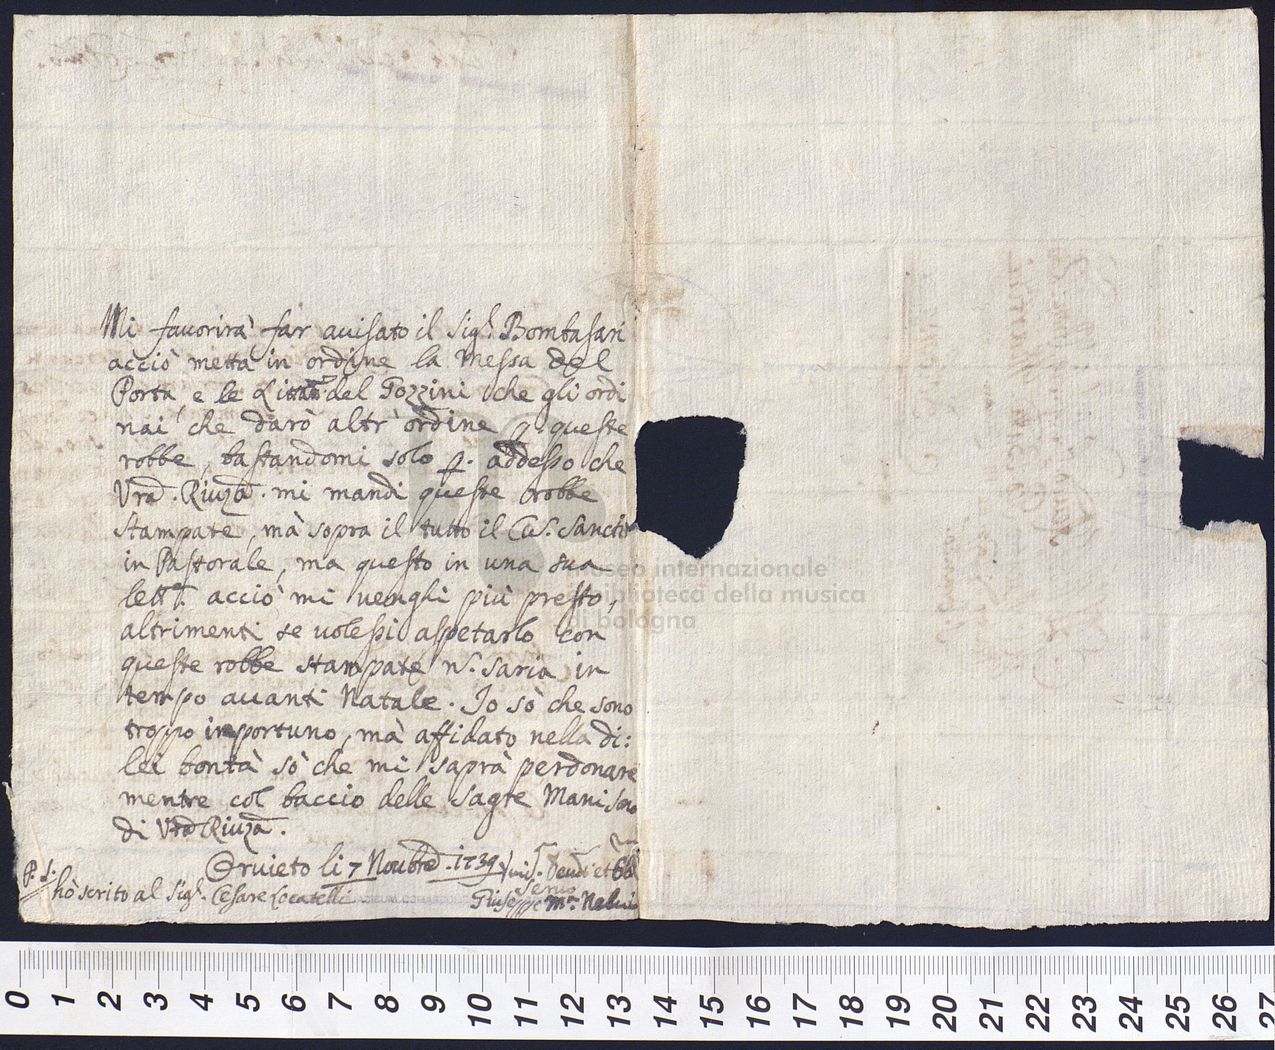 Mi favorirà far avisato il Sig.r Bombasari
acciò metta in ordine la Messa del
Porta e le Littan.e del Pozzini che gli ordi
nai che darò altr'ordine p. queste
robbe, bastandomi solo p. addesso che
V.ra Riu.za mi mandi queste robbe
stampate, mà sopra il tutto il Cu. Sancto
in Pastorale, ma questo in una sua
lett.a acciò mi venghi più presto,
altrimenti se volessi aspetarlo con
queste robbe stampate n. saria in
tempo avanti Natale. Io sò che sono
troppo importuno, mà affidato nella di:
lei bontà sò che mi saprà perdonare
mentre col baccio delle sagre Mani sono
di V.ra Riu.za.
Orvieto li 7 Novbre 1739 Umi. Deu.
Servo
P.S. hò scrito al Sig.r Cesare Locatelli
Giuseppe M.a
museo internazionale
e biblioteca della musica
di bologna
0 1 2 3 4 5 6 7 8 9 10 11 12 13 14 15 16 17 18 19 20 21 22 23 24 25 26 27